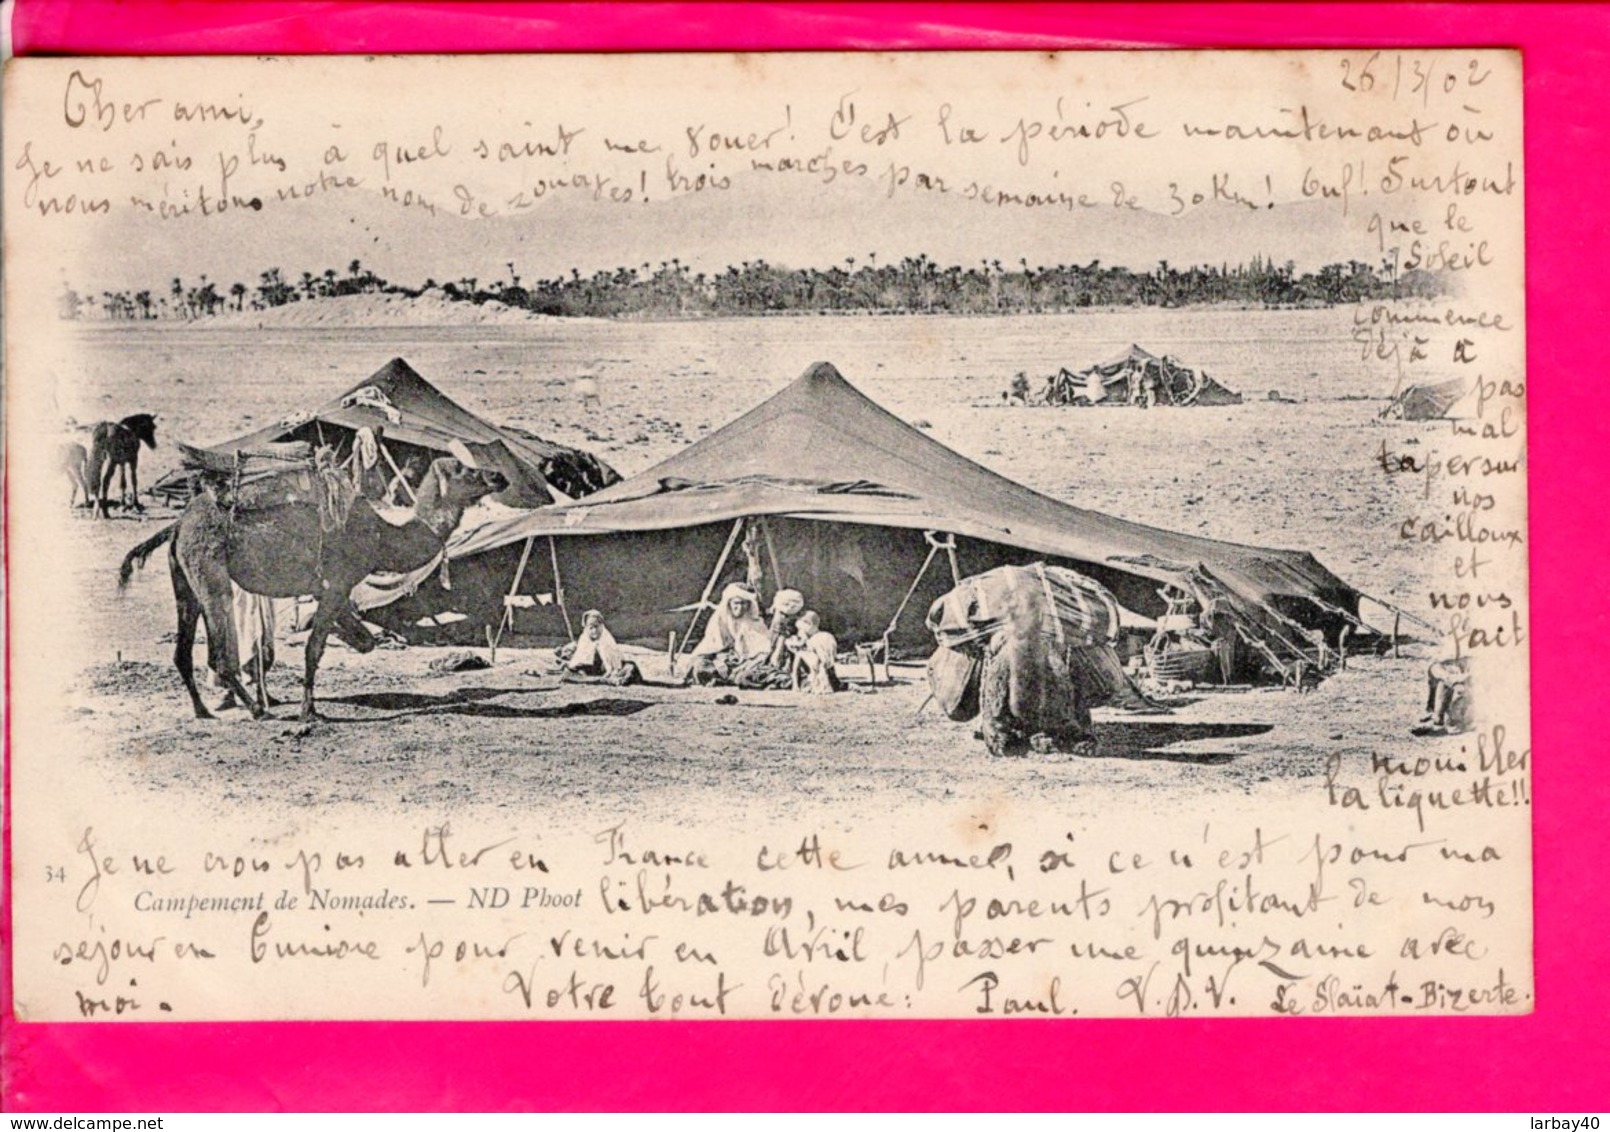 26/3/02
Cher ami,
Je ne sais plus à quel saint me vouer! C'est la période maintenant où
nous méritons notre nom de zouaves! trois marches par semaine de 30 Km! Ouf! Surtout
que le
Soleil
commence
déjà à
pas
mal
taper sur
nos
cailloux
et
nous
fait
mouiller
la liquette!!
Je ne crois pas aller en France cette année, si ce n'est pour ma
34
Campement de Nomades. — ND Phoot libération, mes parents profitant de mon
séjour en Tunisie pour venir en Avril, passer une quinzaine avec
moi.
Votre tout dévoué: Paul. V.D.V. Bizerte.
delcampe.net
larbay40